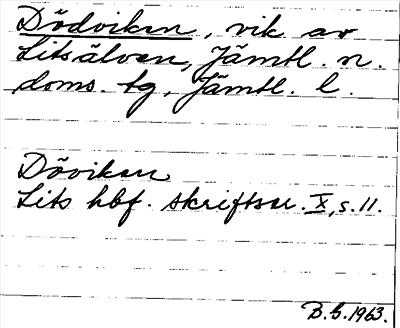 Dödviken, vik av
Litsälven, Jämtl. n.
doms. tg, Jämtl. l.
Döviken
Lits hbf. skriftser. X, s. 11.
B.G. 1963.